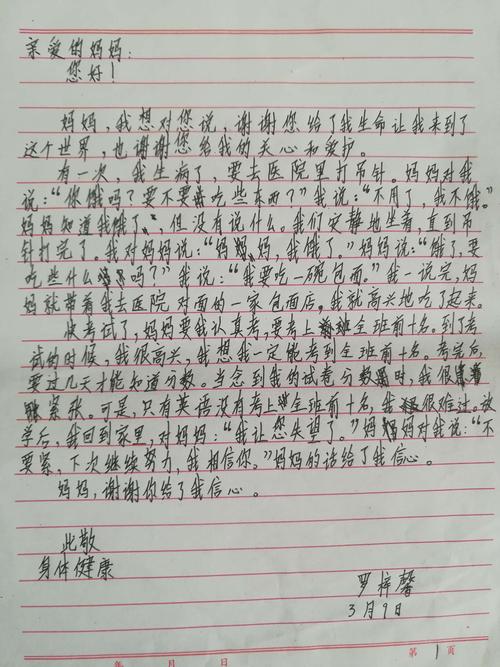 亲爱的妈妈:
您好!
妈妈,我想对您说,谢谢您给了我生命让我来到了
这个世界,也谢谢您给我的关心和爱护。
有一次,我生病了,要去医院里打吊针。妈妈对我
说:“你饿吗?要不要吃些东西?”我说:“不用了,我不饿。”
妈妈知道我饿了,但没有说什么。我们安静地坐着,直到吊
针打完了。我对妈妈说:“妈妈,我饿了。”妈妈说:“饿了,要
吃些什么吗?”我说:“我要吃一碗包面。”我一说完,妈
妈就带着我去医院对面的一家包面店。我就高兴地吃了起来。
快考试了,妈妈要我认真考,要考上全班前十名。到了考
试的时候,我很高兴,我想我一定能考到全班前十名。考完后,
要过几天才能知道分数。当念到我的试卷分数时,我很
紧张。可是,只有英语没有考上全班前十名,我很难过。放
学后,我回到家里,对妈妈:“我让您失望了。”妈妈对我说:“不
要紧,下次继续努力,我相信你。”妈妈的话给了我信心。
妈妈,谢谢你给了我信心。
此敬
身体健康
罗梓馨
3月9日
年 月 日 第1页